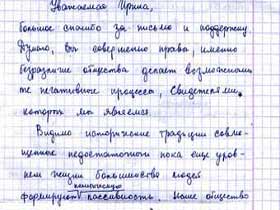 Уважаемая Ирина,
большое спасибо за письмо и поддержку.
Думаю, вы совершенно правы, именно
безразличие общества делает возможными
те негативные процессы, свидетелями
которых мы являемся.
Видимо исторические традиции совме-
щенные недостаточного пока еще уров-
нем жизни большинства людей
формируют политическую пассивность. Наше общество